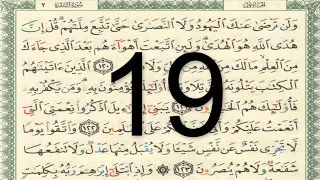 الجزء الأول سورة البقرة ٢
وَلَن تَرْضَىٰ عَنكَ ٱلْيَهُودُ وَلَا ٱلنَّصَٰرَىٰ حَتَّىٰ تَتَّبِعَ مِلَّتَهُمْ قُلْ إِنَّ
هُدَى ٱللَّهِ هُوَ ٱلْهُدَىٰ وَلَئِنِ ٱتَّبَعْتَ أَهْوَآءَهُم بَعْدَ ٱلَّذِى جَآءَكَ
مِنَ ٱلْعِلْمِ مَا لَكَ ١٢٠ ٱلَّذِينَ ءَاتَيْنَٰهُمُ
ٱلْكِتَٰبَ يَتْلُونَهُۥ يُؤْمِنُونَ بِهِۦ وَمَن يَكْفُرْ بِهِۦ
فَأُو۟لَٰٓئِكَ هُمُ ٱلْخَٰسِرُونَ ١٢١ يَٰبَنِىٓ ٱذْكُرُوا۟ نِعْمَتِىَ ٱلَّتِىٓ
أَنْعَمْتُ عَلَيْكُمْ وَأَنِّى ١٢٢ وَٱتَّقُوا۟ يَوْمًا
لَّا تَجْزِى نَفْسٌ عَن نَّفْسٍ شَيْـًٔا وَلَا يُقْبَلُ مِنْهَا عَدْلٌ وَلَا تَنفَعُهَا
شَفَٰعَةٌ وَلَا هُمْ يُنصَرُونَ ١٢٣ وَإِذِ ٱبْتَلَىٰٓ إِبْرَٰهِۦمَ رَبُّهُۥ بِكَلِمَٰتٍ
19